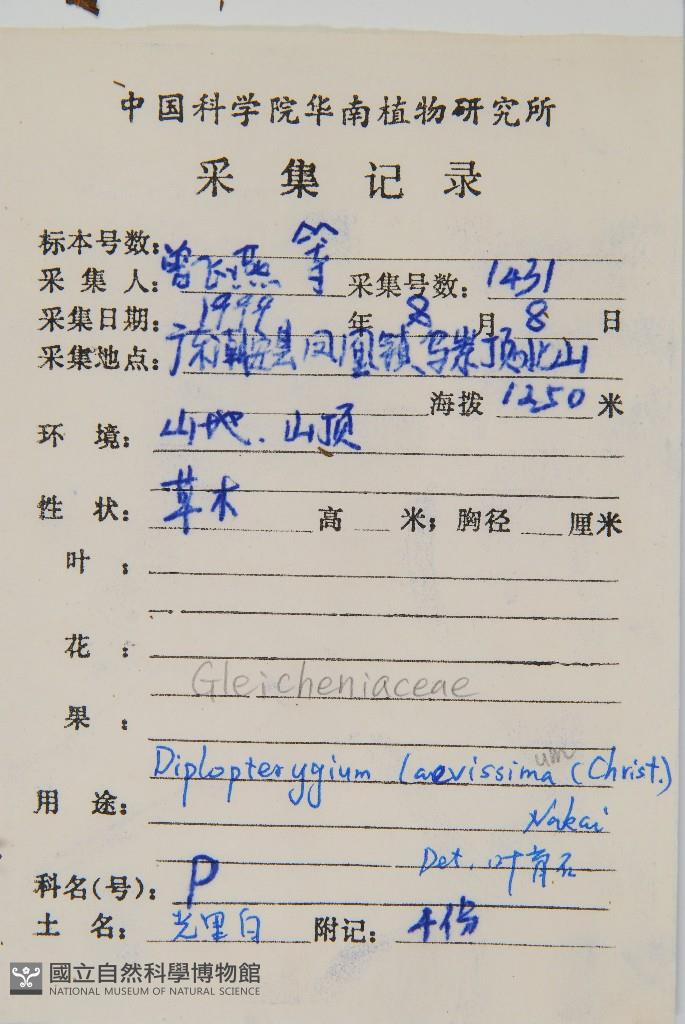 中国科学院华南植物研究所
采集记录
标本号数:
采集人: 曾飞燕 等 采集号数: 1431
采集日期: 1999 年 8 月 8 日
采集地点: 广东潮安县凤凰镇乌岽顶北山
海拨 1250 米
环境: 山地、山顶
性状: 草木 高 米; 胸径 厘米
叶:
花:
Gleicheniaceae
果:
um
Diplopterygium laevissima (Christ.)
用途: Nakai
Det. 叶育石
科名(号): P
土名: 光里白 附记: 4份
國立自然科學博物館
NATIONAL MUSEUM OF NATURAL SCIENCE